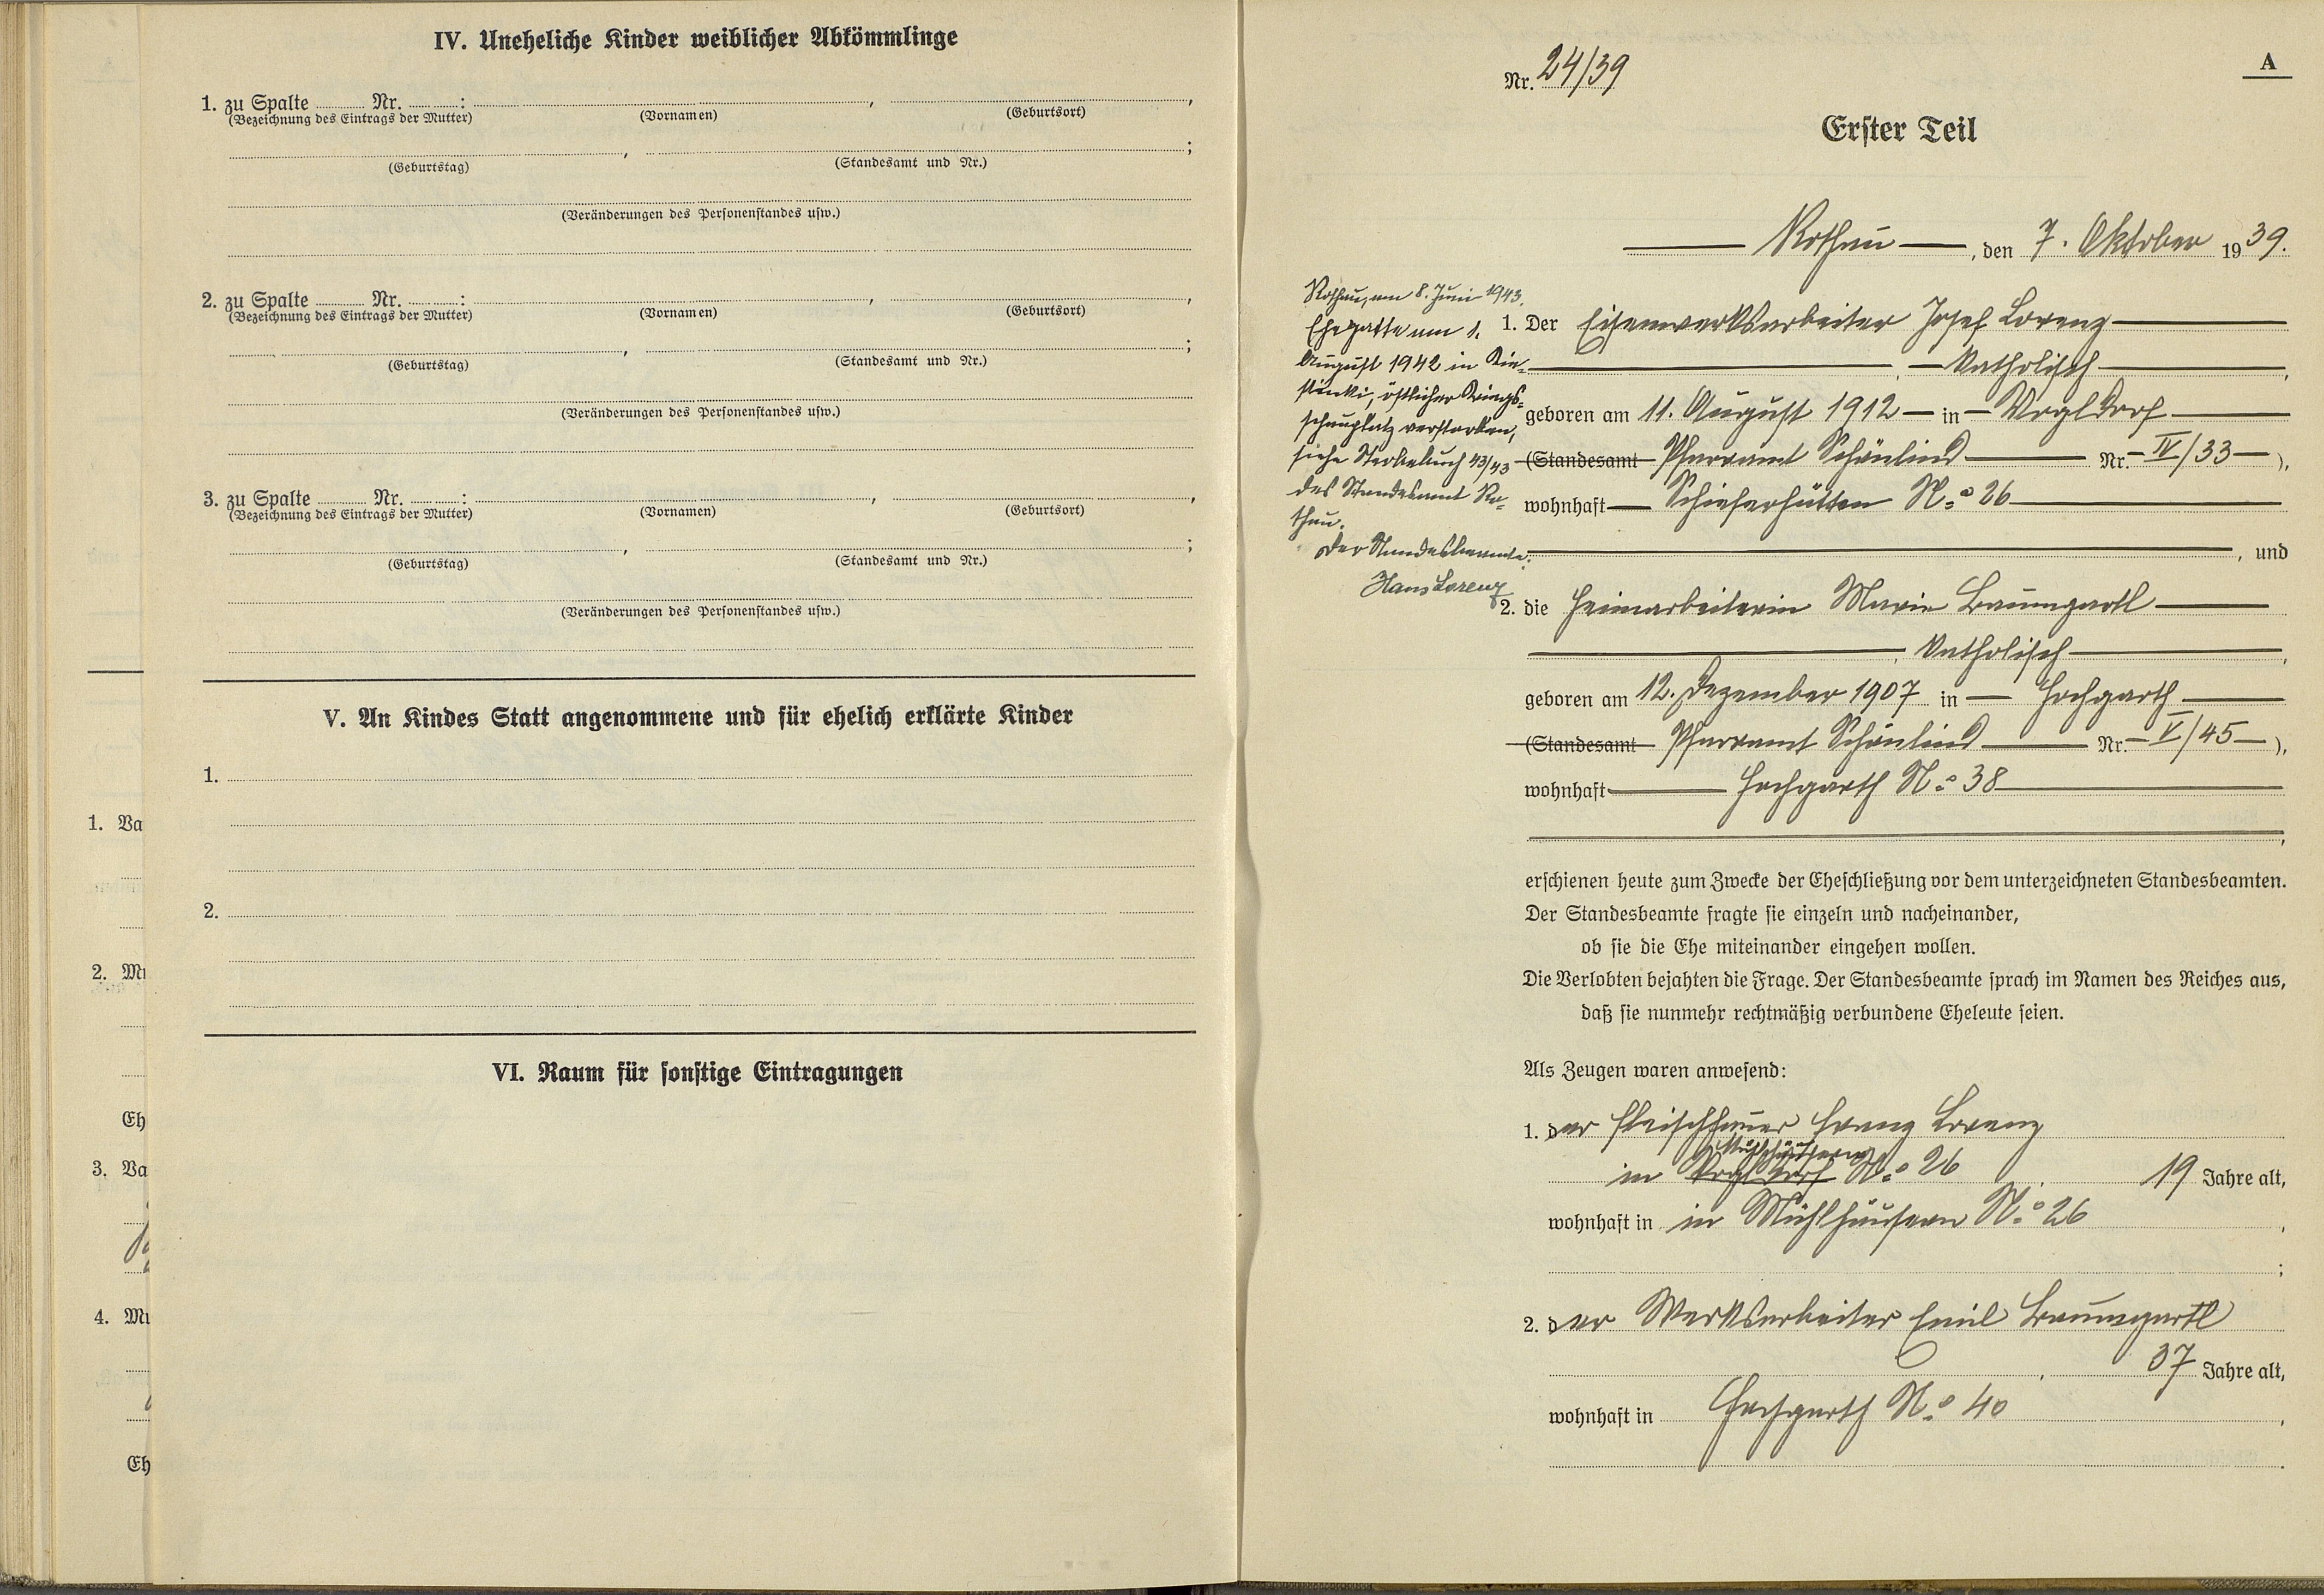 IV. Uneheliche Kinder weiblicher Abkömmlinge
1. zu Spalte Nr. : , ,
(Bezeichnung des Eintrags der Mutter) (Vornamen) (Geburtsort)
, ;
(Geburtstag) (Standesamt und Nr.)
(Veränderungen des Personenstandes usw.)
2. zu Spalte Nr. : , ,
(Bezeichnung des Eintrags der Mutter) (Vornamen) (Geburtsort)
, ;
(Geburtstag) (Standesamt und Nr.)
(Veränderungen des Personenstandes usw.)
3. zu Spalte Nr. : , ,
(Bezeichnung des Eintrags der Mutter) (Vornamen) (Geburtsort)
, ;
(Geburtstag) (Standesamt und Nr.)
(Veränderungen des Personenstandes usw.)
V. An Kindes Statt angenommene und für ehelich erklärte Kinder
1.
2.
VI. Raum für sonstige Eintragungen
1. Va
2. Mu
Eh
3. Va
4. Mu
Eh
A
Nr. 24/39
Erster Teil
Rothau, den 7. Oktober 1939.
Rothau, am 8. Juni 1943.
Ehegatte am 1.
August 1942 in
östlicher Kriegs=
schauplatz verstorben,
siehe Sterbebuch 43/43
des Standesamt Ro=
thau.
Der Standesbeamte:
Hans Lorenz
1. Der Eisenwerksarbeiter Josef Lorenz
, katholisch,
geboren am 11. August 1912 in Vogldorf
(Standesamt Pfarramt Schönlind Nr. IV/33),
wohnhaft Schieferhütten No 26
, und
2. die Heimarbeiterin Marie Baumgartl
, katholisch,
geboren am 12. Dezember 1907 in Hochgarth
(Standesamt Pfarramt Schönlind Nr. V/45),
wohnhaft Hochgarth No 38
,
erschienen heute zum Zwecke der Eheschließung vor dem unterzeichneten Standesbeamten.
Der Standesbeamte fragte sie einzeln und nacheinander,
ob sie die Ehe miteinander eingehen wollen.
Die Verlobten bejahten die Frage. Der Standesbeamte sprach im Namen des Reiches aus,
daß sie nunmehr rechtmäßig verbundene Eheleute seien.
Als Zeugen waren anwesend:
1. der Fleischhauer Franz Lorenz
Mühlhäusern
in Vogldorf No 26, 19 Jahre alt,
wohnhaft in in Mühlhäusern No 26,
;
2. der Werksarbeiter Emil Baumgartl
, 37 Jahre alt,
wohnhaft in Hochgarth No 40,
.